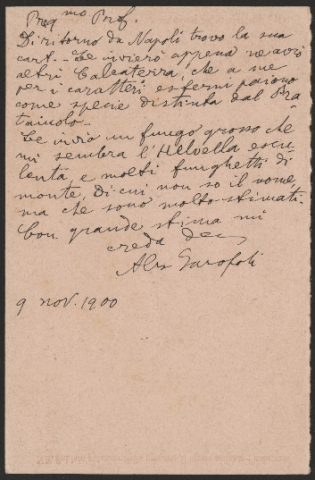 Preg.mo Prof.
Di ritorno da Napoli trovo la sua
cart.. Le invierò appena ne avrò
altri Calcaterra, che a me
per i caratteri esterni paiono
come specie distinta dal Pra
taiuolo..
Le invio un fungo grosso che
mi sembra l'Helvella escu
lenta, e molti funghetti di
monte, Di cui non so il nome,
ma che sono molto stimati.
Con grande stima mi
creda
Aless Garofoli
9 nov. 1900